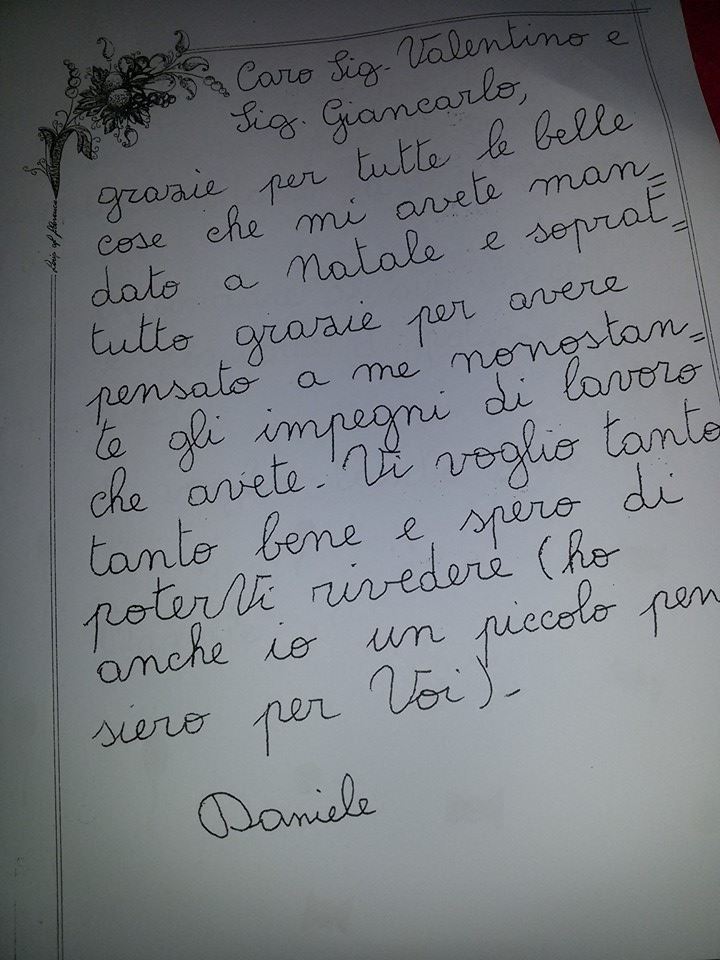 Caro Sig. Valentino e
Sig. Giancarlo,
grazie per tutte le belle
cose che mi avete man=
dato a Natale e soprat=
tutto grazie per avere
pensato a me nonostan=
te gli impegni di lavoro
che avete. Vi voglio tanto
tanto bene e spero di
poterVi rivedere (ho
anche io un piccolo pen
siero per Voi).
Daniele